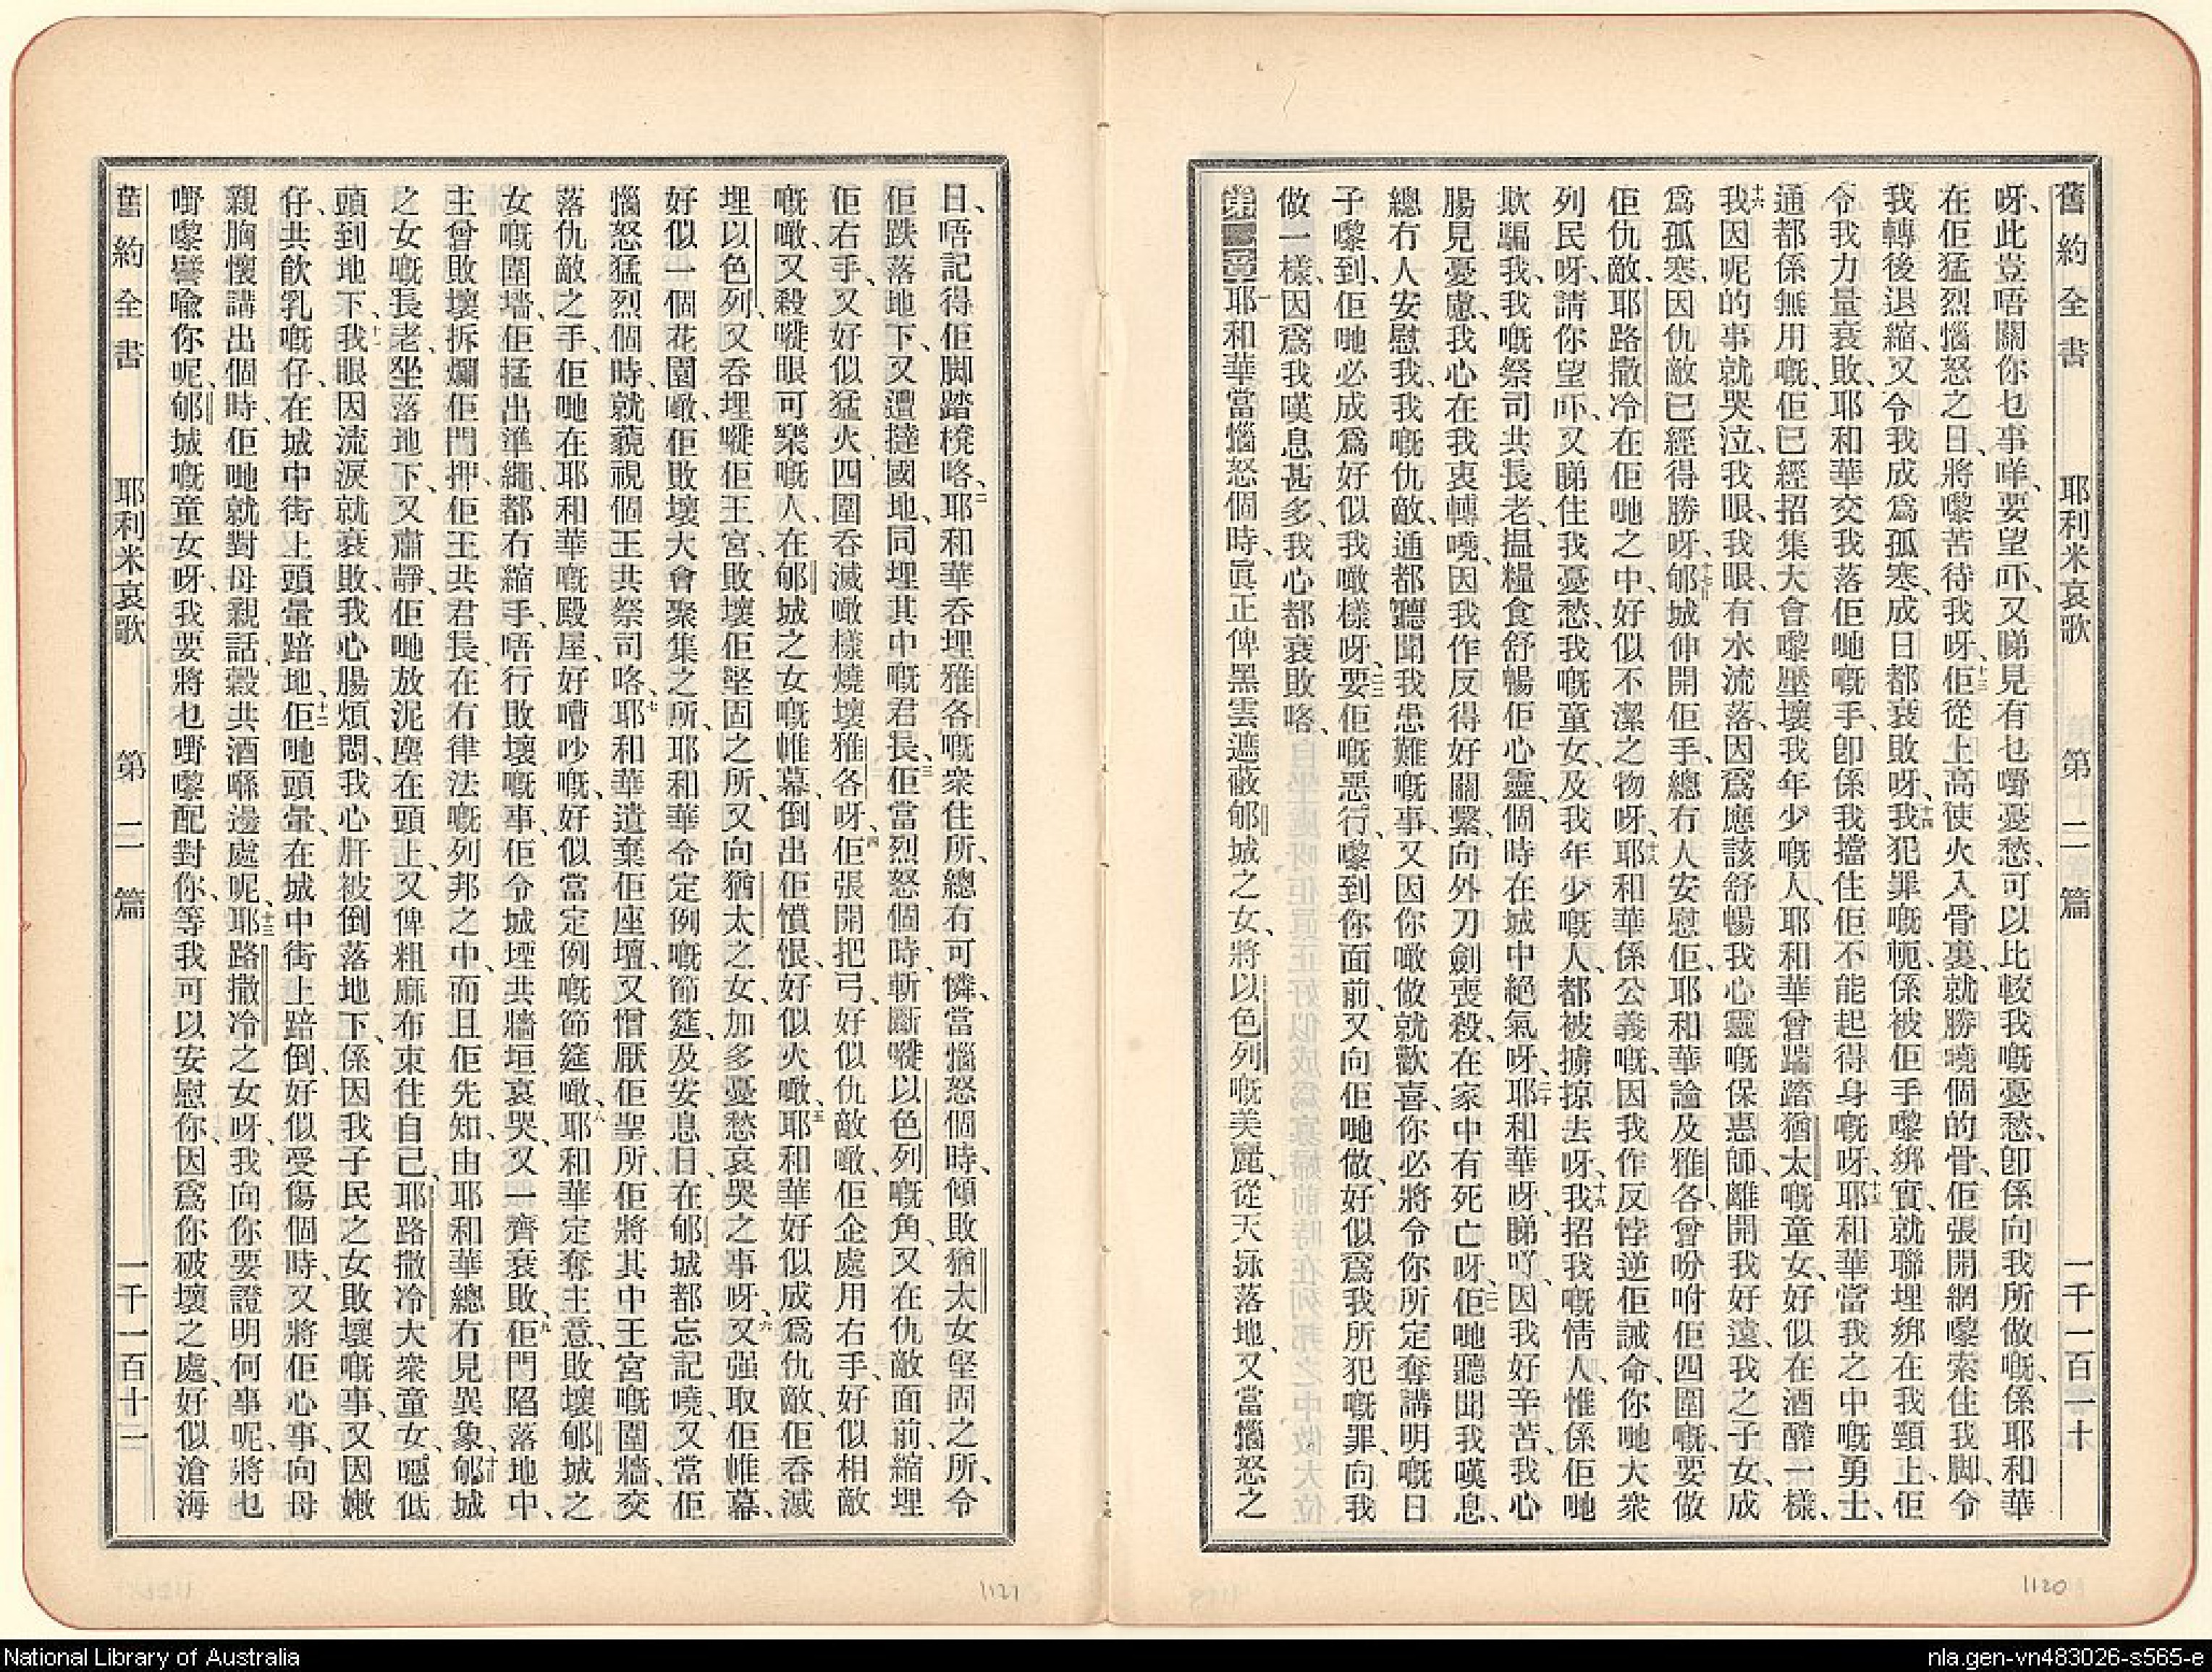 舊約全書 耶利米哀歌 第二篇 一千一百二十
呀、此豈唔關你乜事咩、要望吓、又睇見有乜嘢憂愁、可以比較我嘅憂愁、卽係向我所做嘅、係耶和華
在佢猛烈惱怒之日、將嚟苦待我呀、十三佢從上高使火入骨裏、就勝曉個的骨、佢張開網嚟索住我脚、令
我轉後退縮、又令我成爲孤寒、成日都衰敗呀、十四我犯罪嘅軛、係被佢手嚟綁實、就聯埋綁在我頸上、佢
令我力量衰敗、耶和華交我落佢哋嘅手、卽係我擋住佢不能起得身嘅呀、十五耶和華當我之中嘅勇士、
通都係無用嘅、佢已經招集大會嚟壓壞我年少嘅人、耶和華曾踹踏猶太嘅童女、好似在酒醡一樣、
十六我因呢的事就哭泣、我眼、我眼、有水流落、因爲應該舒暢我心靈嘅保惠師、離開我好遠、我之子女、成
爲孤寒、因仇敵已經得勝呀、十七郇城伸開佢手、總冇人安慰佢、耶和華論及雅各、曾吩咐佢四圍嘅、要做
佢仇敵、耶路撒冷在佢哋之中、好似不潔之物呀、十八耶和華係公義嘅、因我作反悖逆佢誡命、你哋大衆
列民呀、請你望吓、又睇住我憂愁、我嘅童女、及我年少嘅人、都被擄掠去呀、十九我招我嘅情人、惟係佢哋
欺騙我、我嘅祭司共長老、揾糧食舒暢佢心靈、個時在城中絕氣呀、二十耶和華呀、睇吓、因我好辛苦、我心
腸見憂慮、我心在我衷轉曉、因我作反得好關繫、向外刀劍喪殺、在家中有死亡呀、二一佢哋聽聞我嘆息、
總冇人安慰我、我嘅仇敵、通都聽聞我患難嘅事、又因你噉做就歡喜、你必將令你所定奪講明嘅日
子嚟到、佢哋必成爲好似我噉樣呀、二二要佢嘅惡行、嚟到你面前、又向佢哋做、好似爲我所犯嘅罪、向我
做一樣、因爲我嘆息甚多、我心都衰敗咯、
第二章一耶和華當惱怒個時、眞正俾黑雲遮蔽郇城之女、將以色列嘅美麗、從天掁落地、又當惱怒之
日、唔記得佢脚踏櫈咯、二耶和華吞埋雅各嘅衆住所、總冇可憐、當惱怒個時、傾敗猶太女堅固之所、令
佢跌落地下、又遭撻國地、同埋其中嘅君長、三佢當烈怒個時、斬斷嘥以色列嘅角、又在仇敵面前、縮埋
佢右手、又好似猛火、四圍吞滅噉樣燒壞雅各呀、四佢張開把弓、好似仇敵噉、佢企處用右手、好似相敵
嘅噉、又殺嘥眼可樂嘅人、在郇城之女嘅帷幕、倒出佢憤恨、好似火噉、五耶和華好似成爲仇敵、佢吞滅
埋以色列、又吞埋嘥佢王宮、敗壞佢堅固之所、又向猶太之女、加多憂愁哀哭之事呀、六又强取佢帷幕、
好似一個花園噉、佢敗壞大會聚集之所、耶和華令定例嘅節筵、及安息日、在郇城都忘記曉、又當佢
惱怒猛烈個時、就藐視個王共祭司咯、七耶和華遺棄佢座壇、又憎厭佢聖所、佢將其中王宮嘅圍牆、交
落仇敵之手、佢哋在耶和華嘅殿屋、好嘈吵嘅、好似當定例嘅節筵噉、八耶和華定奪主意、敗壞郇城之
女嘅圍墻、佢掹出準繩、都冇縮手、唔行敗壞嘅事、佢令城堙共牆垣哀哭、又一齊衰敗、九佢門陷落地中、
主曾敗壞拆爛佢門押、佢王共君長在冇律法嘅列邦之中、而且佢先知、由耶和華總冇見異象、十郇城
之女嘅長老、坐落地下、又肅靜、佢哋放泥塵在頭上、又俾粗麻布束住自己、耶路撒冷大衆童女、嗯低
頭到地下、十一我眼因流淚就衰敗、我心腸煩悶、我心肝被倒落地下、係因我子民之女敗壞嘅事、又因嫩
仔、共飮乳嘅仔、在城中街上頭暈踣地、十二佢哋頭暈、在城中街上踣倒、好似受傷個時、又將佢心事、向母
親胸懷講出個時、佢哋就對母親話、穀共酒喺邊處呢、十三耶路撒冷之女呀、我向你要證明何事呢、將乜
嘢嚟譬喩你呢、郇城嘅童女呀、我要將乜嘢嚟配對你、等我可以安慰你、因爲你破壞之處、好似滄海
舊約全書 耶利米哀歌 第二篇 一千一百廿一
1121
1120
National Library of Australia
nla.gen-vn483026-s565-e